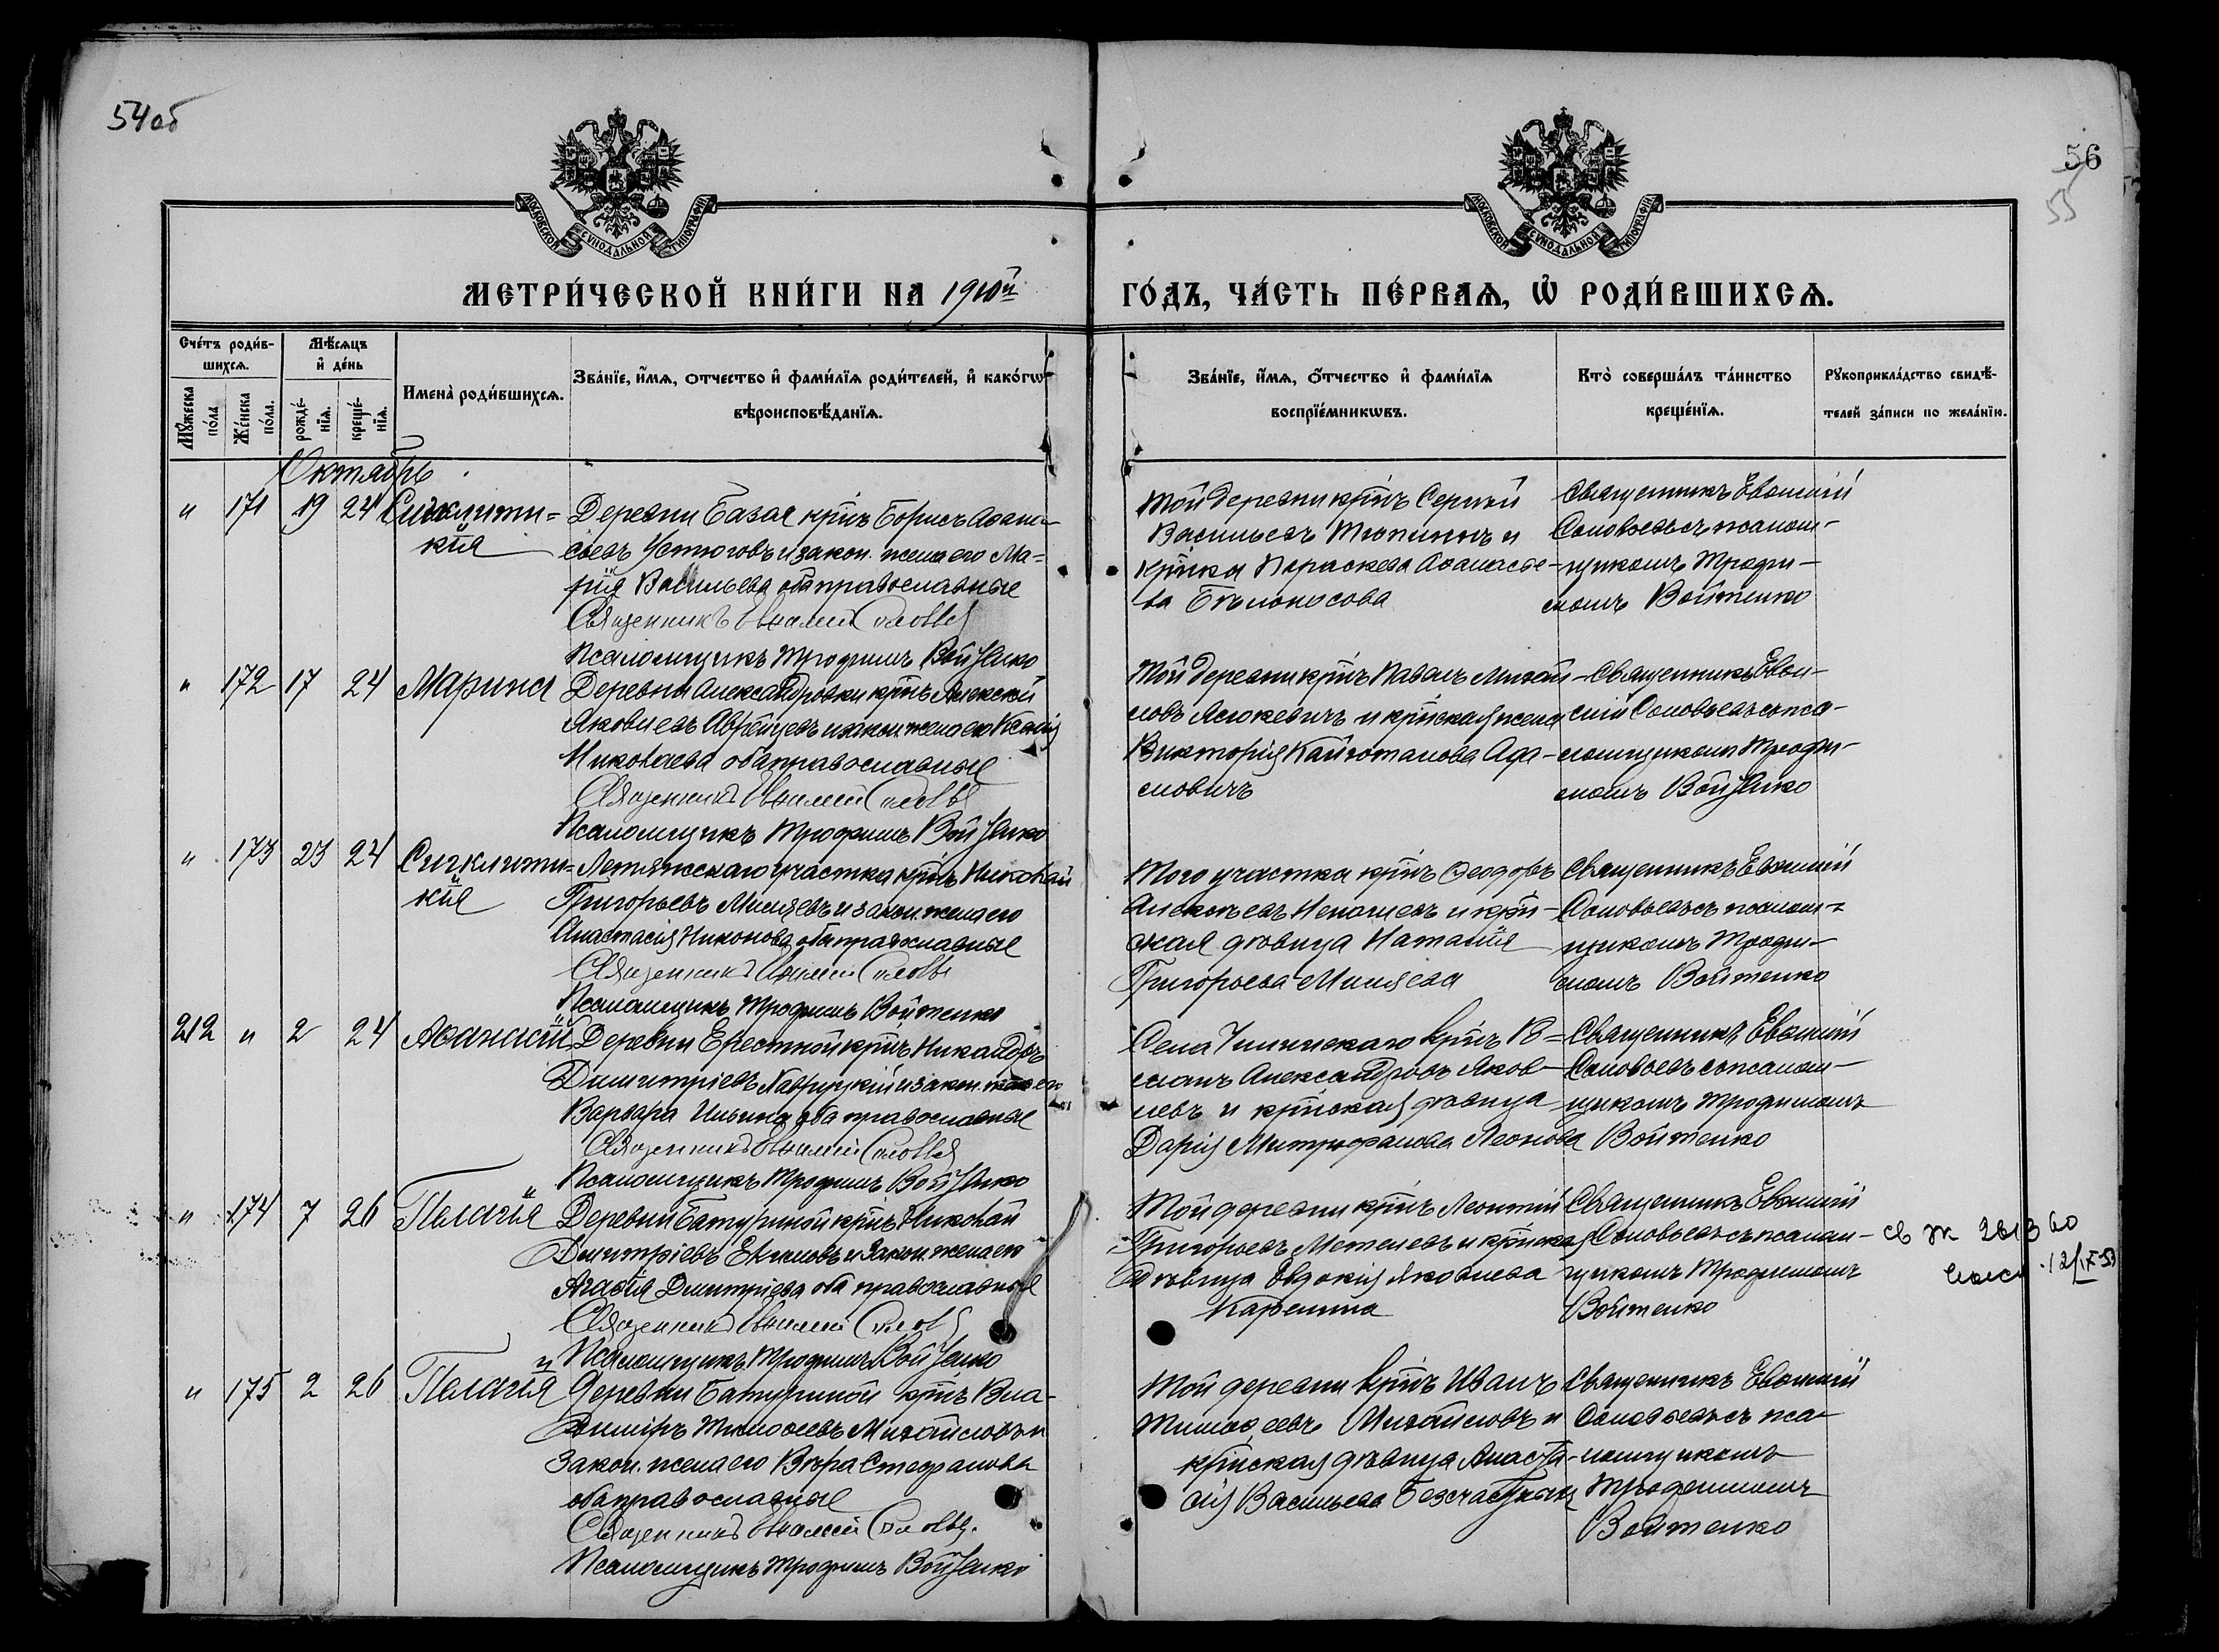 54об
56
55
МОСКОВСКОЙ СѴНОДАЛЬНОЙ ТИПОГРАФІИ
МОСКОВСКОЙ СѴНОДАЛЬНОЙ ТИПОГРАФІИ
МЕТРИ́ЧЕСКОЙ КНИ́ГИ НА 1910й
ГО́ДЪ, ЧА́СТЬ ПЕ́РВАѦ, Ѡ҆ РОДИ́ВШИХСѦ.
Сче́тъ роди́в-
шихсѧ.
Мѣ́сѧцъ
и҆ де́нь
Мꙋ́жеска
по́ла
Же́нска
по́ла.
рожде́-
нїѧ.
креще́-
нїѧ.
Имена̀ роди́вшихсѧ.
Зва́нїе, и҆́мѧ, ѻтчество и҆ фами́лїѧ роди́телей, и҆ како́гѡ
вѣроисповѣ́данїѧ.
Зва́нїе, и҆́мѧ, ѻ҆́тчество и҆ фами́лїѧ
воспрїе́мникѡвъ.
Кто̀ соверша́лъ та́инство
креще́нїѧ.
Рꙋкоприкла́дство свидѣ́-
телей за́писи по жела́нїю.
Октябрь
" 171 19 24 Сигклити=
кія
Деревни Базая крінъ Борисъ Аѳана-
сьевъ Устюговъ и закон. жена его Ма=
рія Васильева оба православные
Священникъ Евѳимій Соловьев
Псаломщикъ Трофимъ Войтенко
Той деревни крінъ Сергѣй
Васильевъ Тюпинъ и
крінка Параскева Аѳанасье-
ва Бѣлоносова
Священникъ Евѳимій
Соловьевъ съ псалом-
щикомъ Трофи-
момъ Войтенко
" 172 17 24 Марина
Деревни Александровки крінъ Алексѣй
Яковлевъ и закон. жена его Ксенія
Николаева оба православные
Священникъ Евѳимій Соловьев
Псаломщикъ Трофимъ Войтенко
Той деревни крінъ Павелъ Михай-
ловъ Яцкевичъ и крінская жена
Викторія Кайтотанова Ада-
мовичъ
Священникъ Евѳи-
мій Соловьевъ съ пса-
ломщикомъ Трофи-
момъ Войтенко
" 173 23 24 Сигклити=
кія
Летяжскаго участка крінъ Николай
Григорьевъ Миляевъ и закон. жена его
Анастасія Никонова оба православные
Священникъ Евѳимій Соловьев
Псаломщикъ Трофимъ Войтенко
Того участка крінъ Ѳеодоръ
Алексѣевъ и крін-
ская дѣвица Наталія
Григорьева Миляева
Священникъ Евѳимій
Соловьевъ съ псалом-
щикомъ Трофи-
момъ Войтенко
212 " 2 24 Аѳанасій
Деревни Ерестной крінъ Никандръ
Димитріевъ и закон. жена его
Варвара Ильина оба православные
Священникъ Евѳимій Соловьев
Псаломщикъ Трофимъ Войтенко
Села крінъ Р=
оманъ Александровъ Яков-
левъ и крінская дѣвица
Дарія Митрофанова Леонова
Священникъ Евѳимій
Соловьевъ съ псалом-
щикомъ Трофимомъ
Войтенко
" 174 7 26 Пелагія
Деревни Батуриной крінъ Николай
Димитріевъ Екимовъ и закон. жена его
Агаѳія Димитріева оба православные
Священникъ Евѳимій Соловьев
Псаломщикъ Трофимъ Войтенко
Той деревни крінъ Леонтій
Григорьевъ Метелевъ и крінская
дѣвица Евдокія Яковлева
Карелина
Священникъ Евѳимій
Соловьевъ съ псалом-
щикомъ Трофимомъ
Войтенко
12/IX 53
" 175 2 26 Пелагія
Деревни Батуриной крінъ Вла-
димиръ Тимоѳеевъ Михайловъ и
закон. жена его Вѣра Стефанова
оба православные
Священникъ Евѳимій Соловьев.
Псаломщикъ Трофимъ Войтенко
Той деревни крінъ Иванъ
Тимоѳеевъ Михайловъ и
крінская дѣвица Анаста-
сія Васильева Безсчастныхъ
Священникъ Евѳимій
Соловьевъ съ пса-
ломщикомъ
Трофимомъ
Войтенко